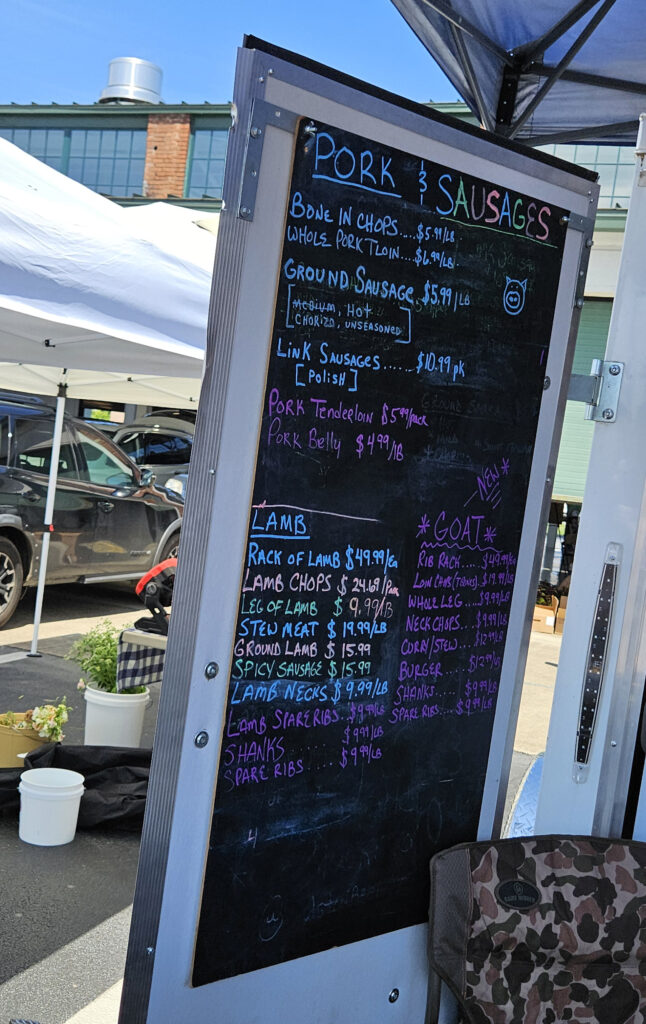 PORK & SAUSAGES
BONE IN CHOPS....$5.99/LB
WHOLE PORK TLOIN....$6.99/LB
GROUND SAUSAGE $5.99/LB
[MEDIUM, HOT
CHORIZO, UNSEASONED]
LINK SAUSAGES......$10.99 pk
[POLISH]
PORK TENDERLOIN $5.99/pack
PORK BELLY $4.99/LB
LAMB
RACK OF LAMB $49.99/Ea
LAMB CHOPS $24.69/Pack
LEG OF LAMB $9.99/LB
STEW MEAT $19.99/LB
GROUND LAMB $15.99
SPICY SAUSAGE $15.99
LAMB NECKS $9.99/LB
LAMB SPARE RIBS..$9.99/LB
SHANKS.......$9.99/LB
SPARE RIBS...$9.99/LB
NEW*
*GOAT*
RIB RACK....$49.99/Ea
LOIN CHOPS..$19.99/LB
WHOLE LEG...$9.99/LB
NECK CHOPS..$9.99/LB
CURRY/STEW..$12.99/LB
BURGER.....$12.99/LB
SHANKS....$9.99/LB
SPARE RIBS..$9.99/LB